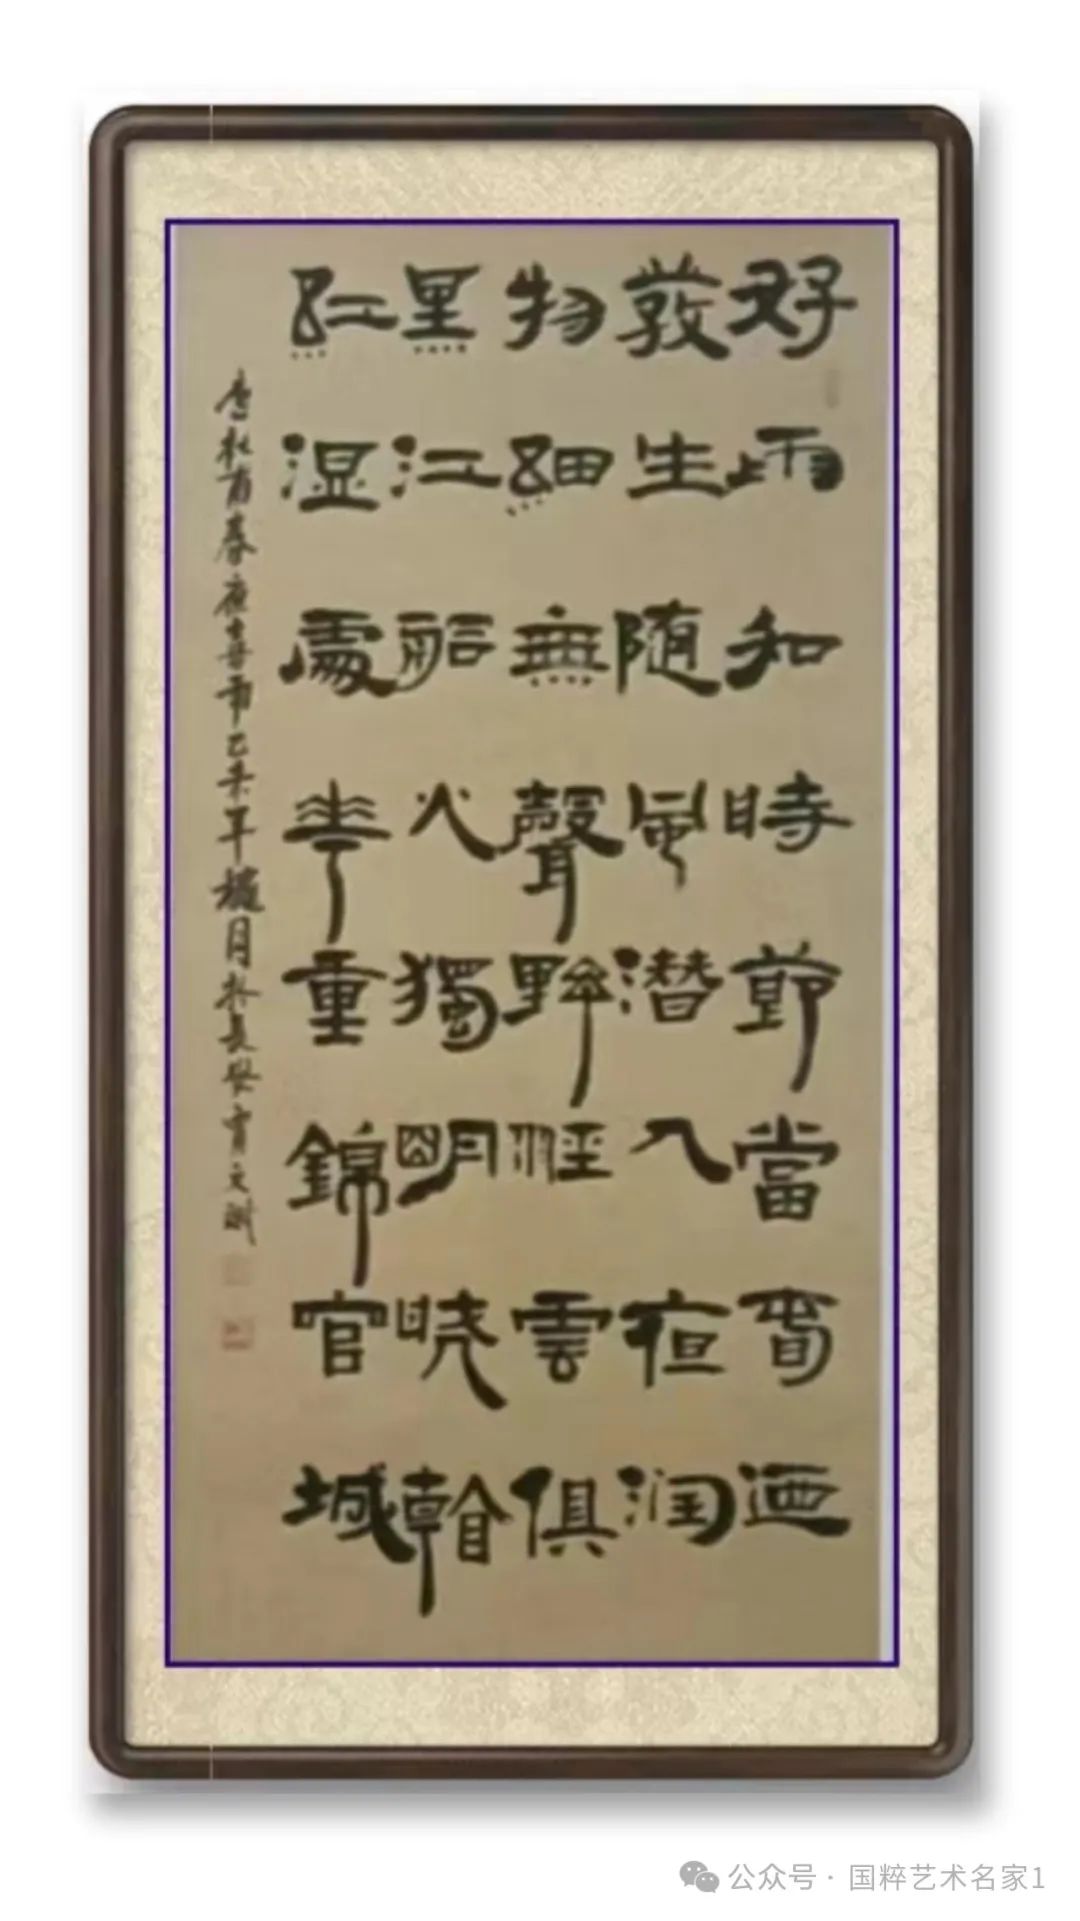 好雨知時節當春迺
發生随風潜入夜润
物細無聲野徑雲俱
黑江船火獨明晓看
紅湿處花重錦官城
唐杜甫春夜喜雨乙未年月於長安文
公众号 · 国粹艺术名家1